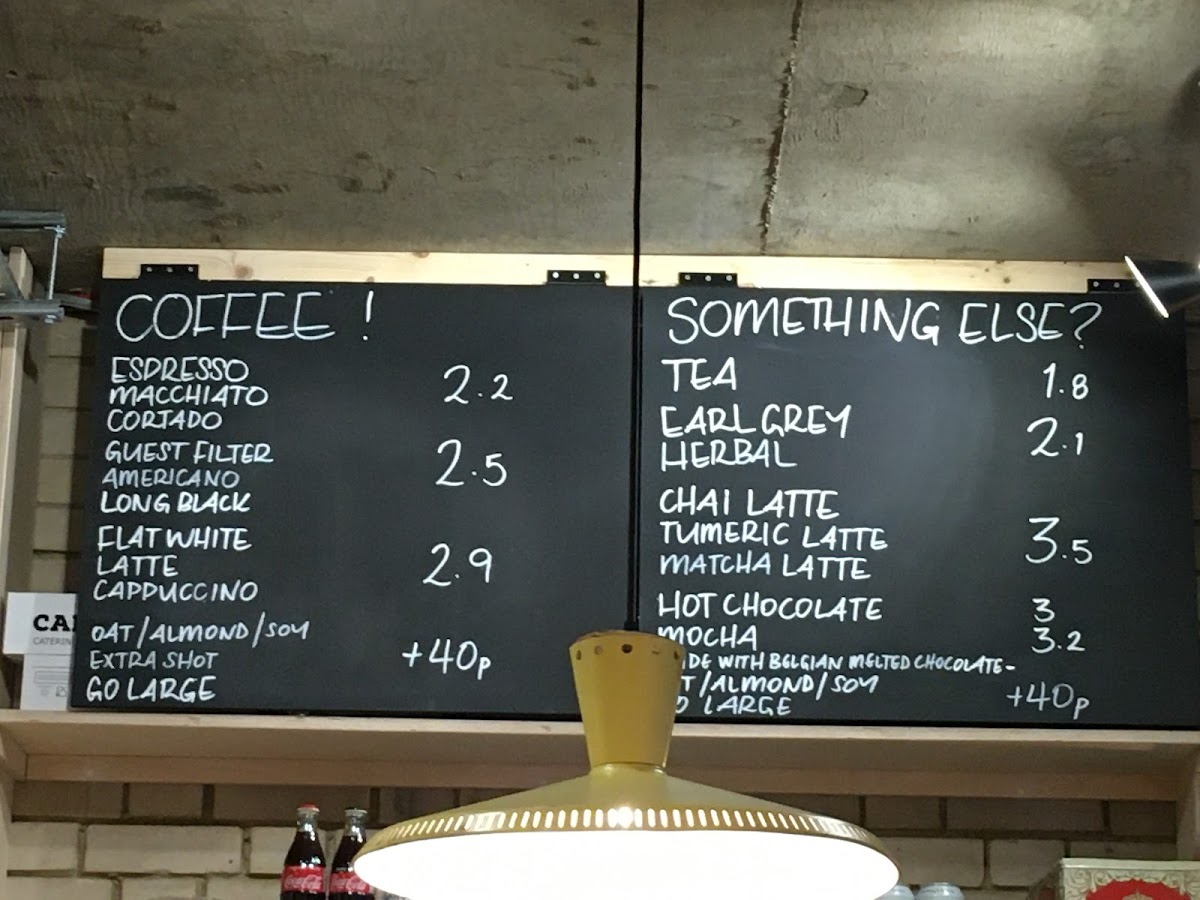 COFFEE !
ESPRESSO
MACCHIATO
CORTADO
2.2
GUEST FILTER
AMERICANO
LONG BLACK
2.5
FLAT WHITE
LATTE
CAPPUCCINO
2.9
OAT/ALMOND/SOY
EXTRA SHOT
GO LARGE
+40p
SOMETHING ELSE?
TEA 1.8
EARL GREY
HERBAL
2.1
CHAI LATTE
TUMERIC LATTE
MATCHA LATTE
3.5
HOT CHOCOLATE 3
MOCHA 3.2
WITH BELGIAN MELTED CHOCOLATE-
/ALMOND/SOY
LARGE
+40p
Coca-Cola